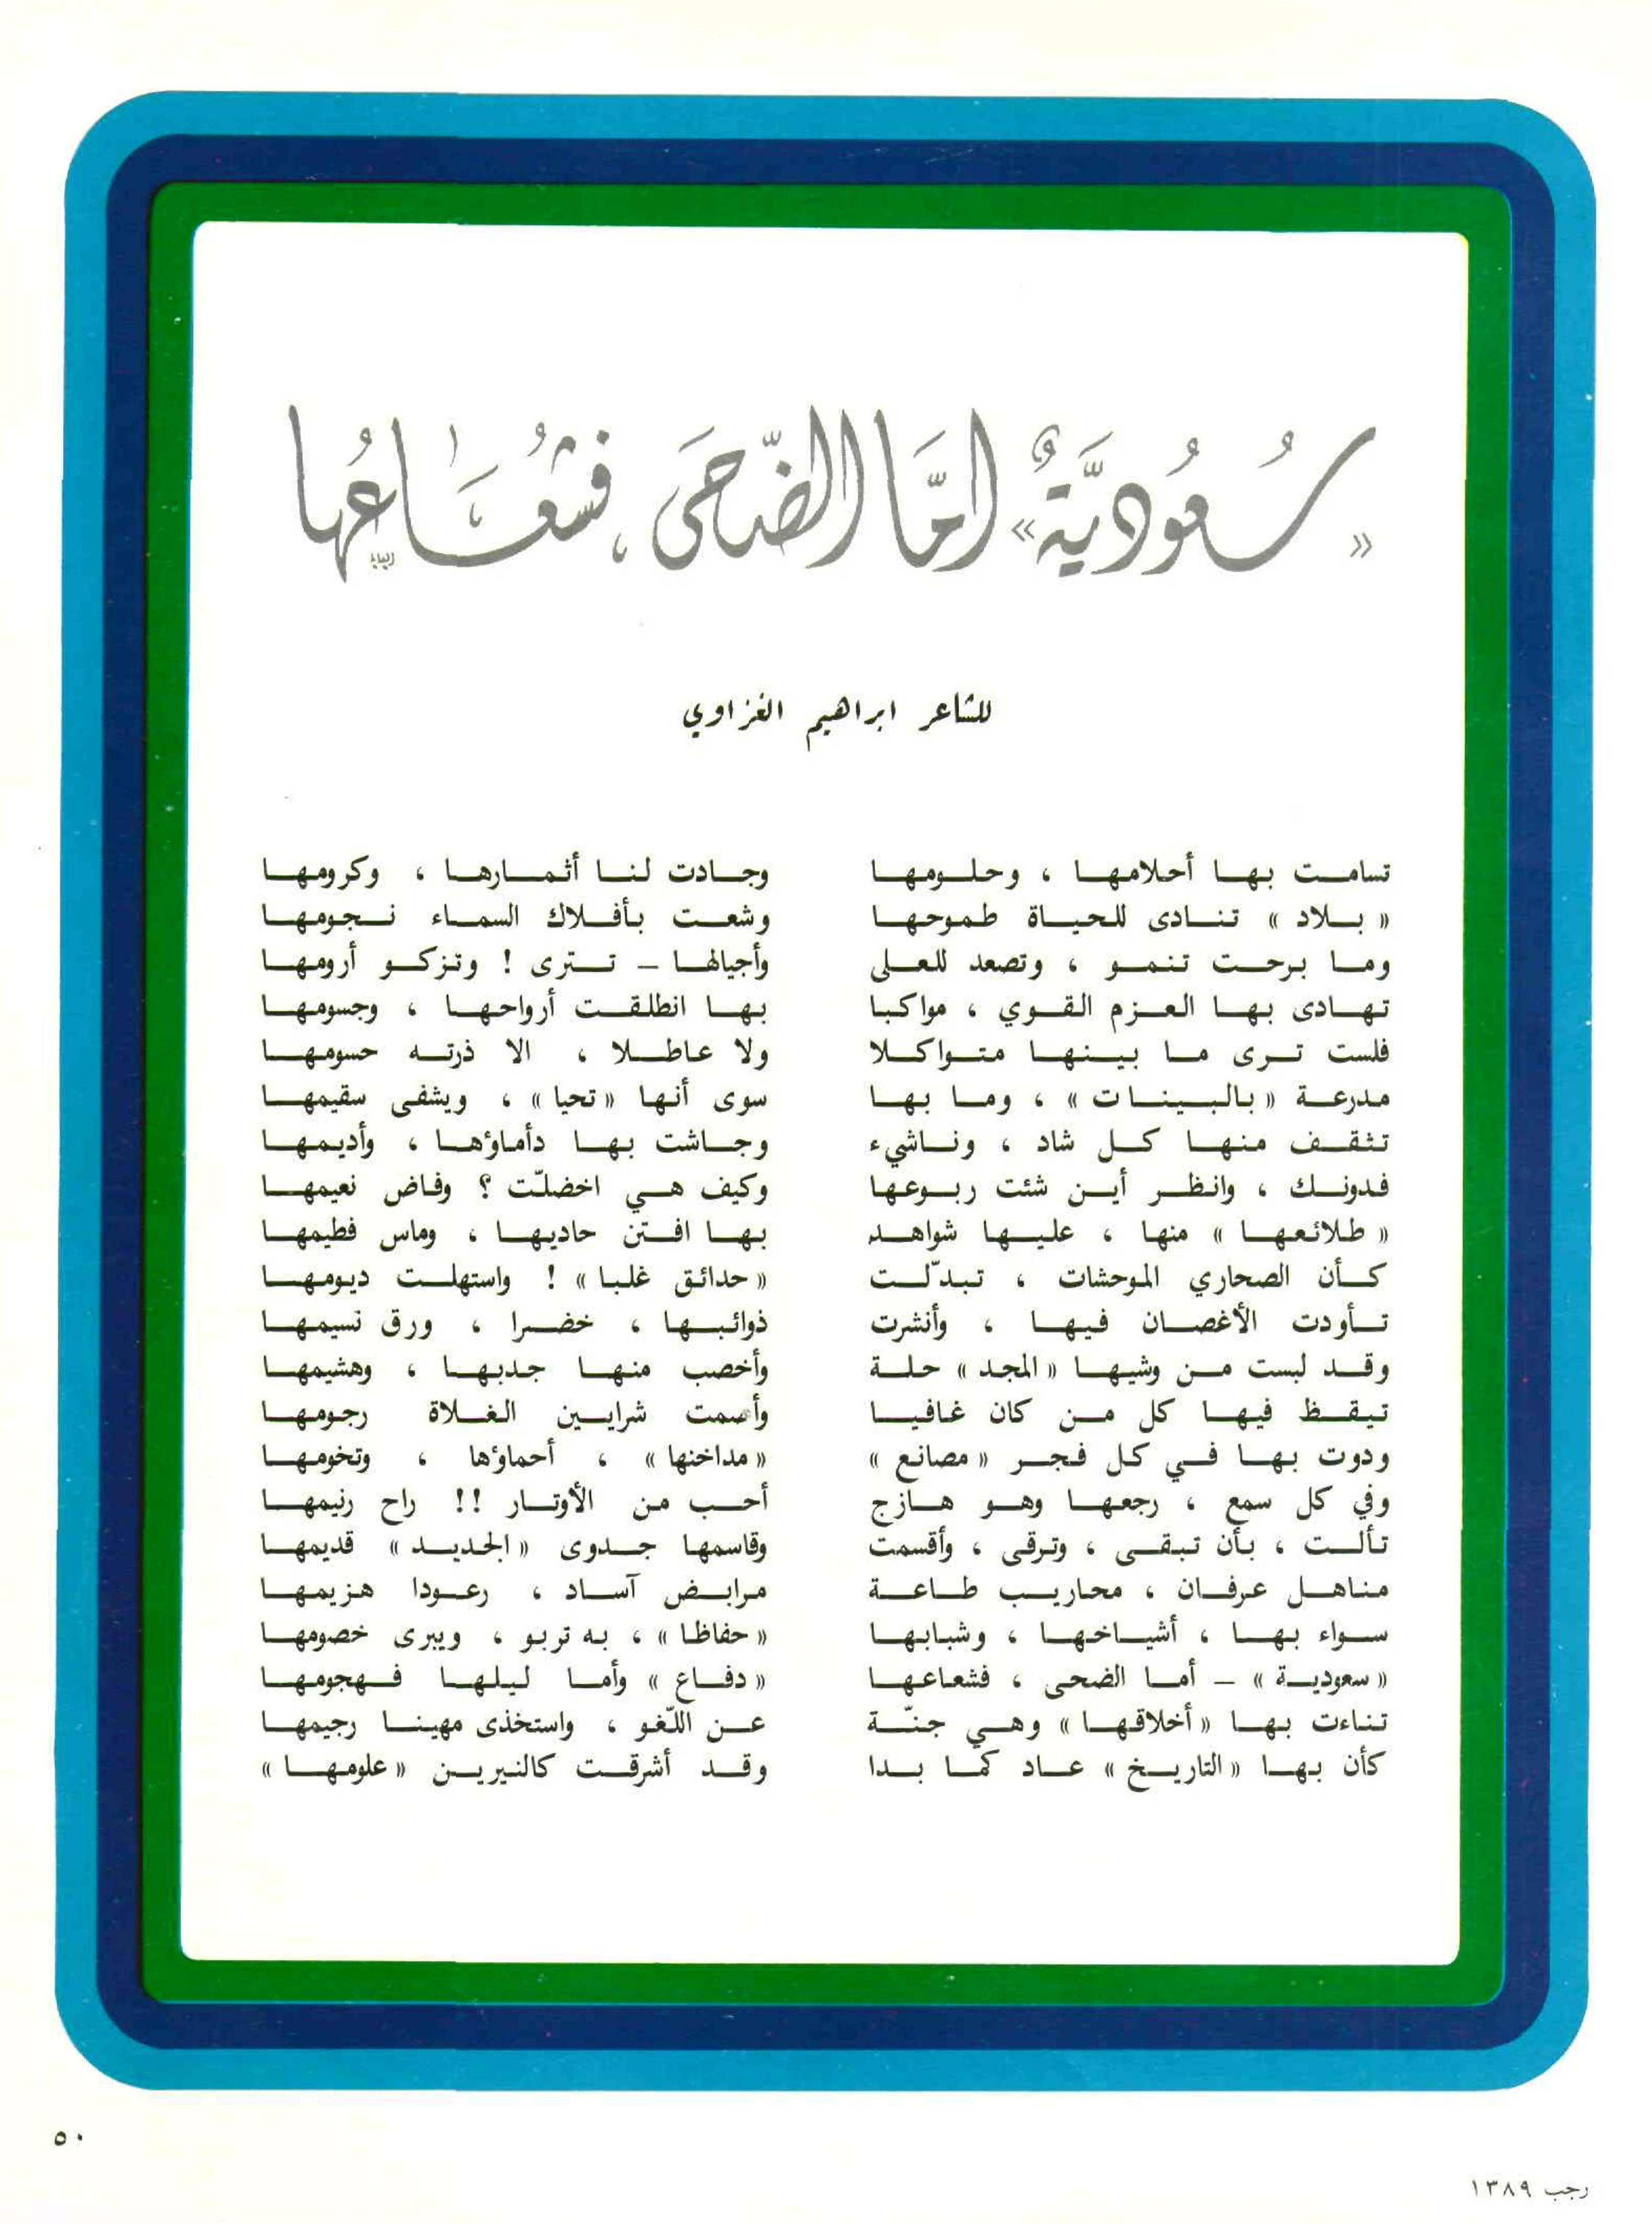 «سُعُودِيَّةٌ» امَّا الضُّحَى ، فَشُعَاعُهَا
للشاعر ابراهيم الغزاوي
تسامت بها أحلامها ، وحلومها وجادت لنا أثمارها ، وكرومها
« بلاد » تنادى للحياة طموحها وشعت بأفلاك السماء نجومها
وما برحت تنمو ، وتصعد للعلى وأجيالها – تترى ! وتزكو أرومها
تهادى بها العزم القوي ، مواكبا بها انطلقت أرواحها ، وجسومها
فلست ترى ما بينها متواكلا ولا عاطلا ، الا ذرته حسومها
مدرعة « بالبينات » ، وما بها سوى أنها « تحيا » ، ويشفى سقيمها
تثقف منها كل شاد ، وناشيء وجاشت بها دأماؤها ، وأديمها
فدونك ، وانظر أين شئت ربوعها وكيف هي اخضلّت ؟ وفاض نعيمها
« طلائعها » منها ، عليها شواهد بها افتن حاديها ، وماس فطيمها
كأن الصحاري الموحشات ، تبدّلت « حدائق غلبا » ! واستهلت ديومها
تأودت الأغصان فيها ، وأنشرت ذوائبها ، خضرا ، ورق نسيمها
وقد لبست من وشيها « المجد » حلة وأخصب منها جدبها ، وهشيمها
تيقظ فيها كل من كان غافيا وأصمت شرايين الغلاة رجومها
ودوت بها في كل فجر « مصانع » « مداخنها » ، أحماؤها ، وتخومها
وفي كل سمع ، رجعها وهو هازج أحب من الأوتار !! راح رنيمها
تألت ، بأن تبقى ، وترقى ، وأقسمت وقاسمها جدوى « الجديد » قديمها
مناهل عرفان ، محاريب طاعة مرابض آساد ، رعودا هزيمها
سواء بها ، أشياخها ، وشبابها « حفاظا » ، به تربو ، ويبرى خصومها
« سعودية » – أما الضحى ، فشعاعها « دفاع » وأما ليلها فهجومها
تناءت بها « أخلاقها » وهي جنّة عن اللّغو ، واستخذى مهينا رجيمها
كأن بها « التاريخ » عاد كما بدا وقد أشرقت كالنيرين « علومها »
٥٠
رجب ١٣٨٩